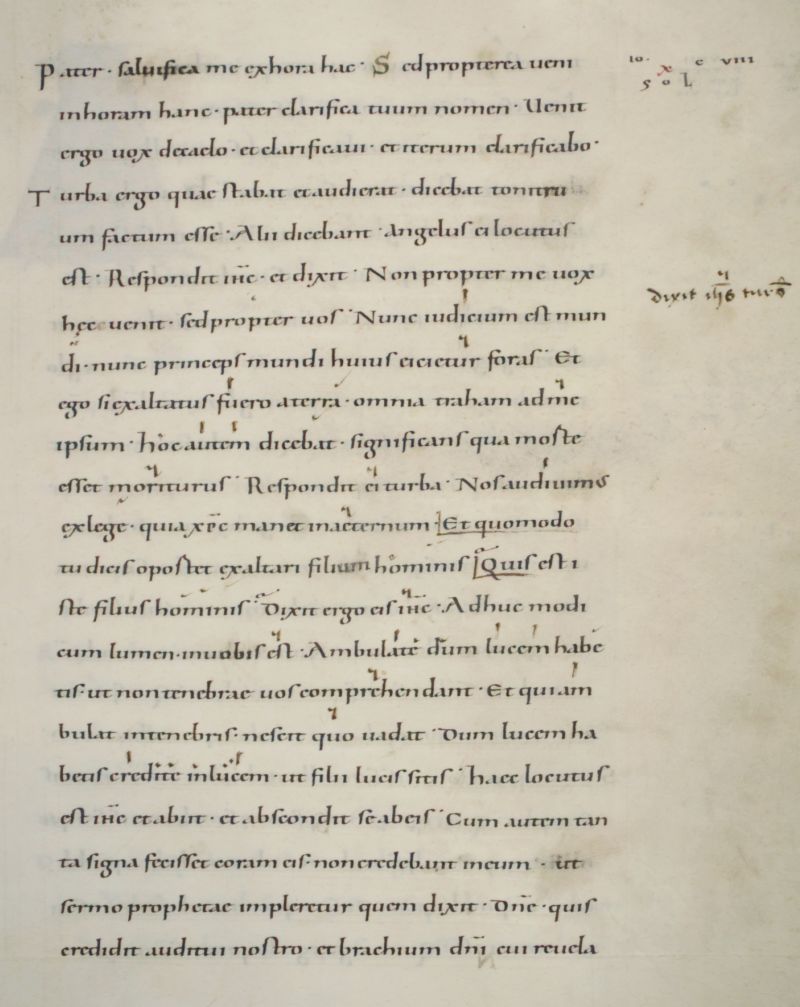 Pater · saluifica me exhora hac · Sed propterea ueni
inhoram hanc · pater clarifica tuum nomen · Uenit
ergo uox decaelo · et clarificaui · et iterum clarificabo ·
Turba ergo quae stabat et audierat · dicebat tonitru
um factum esse · Alii dicebant · Angelus ei locutus
est · Respondit ihc · et dixit · Non propter me uox
hec uenit · sed propter uos · Nunc iudicium est mun
di · nunc princeps mundi huius eicietur foras · Et
ego si exaltatus fuero aterra · omnia traham ad me
ipsum · hoc autem dicebat · significans qua morte
esset moriturus · Respondit ei turba · Nos audiuimus
exlege · quia xpc manet inaeternum · Et quomodo
tu dicis oportet exaltari filium hominis · Quis est i
ste filius hominis · Dixit ergo eis ihc · Adhuc modi
cum lumen · inuobis est · Ambulate dum lucem habe
tis · ut non tenebrae uos comprehendant · Et qui am
bulat intenebris · nescit quo uadat · Dum lucem ha
betis credite inlucem · ut filii lucis sitis · haec locutus
est ihc et abiit · et abscondit se abeis · Cum autem tan
ta signa fecisset coram eis · non credebant ineum · ut
sermo prophetae impleretur quem dixit · Dne · quis
credidit auditui nostro · et brachium dni cui reuela
io · x c viii
s o l
dixit